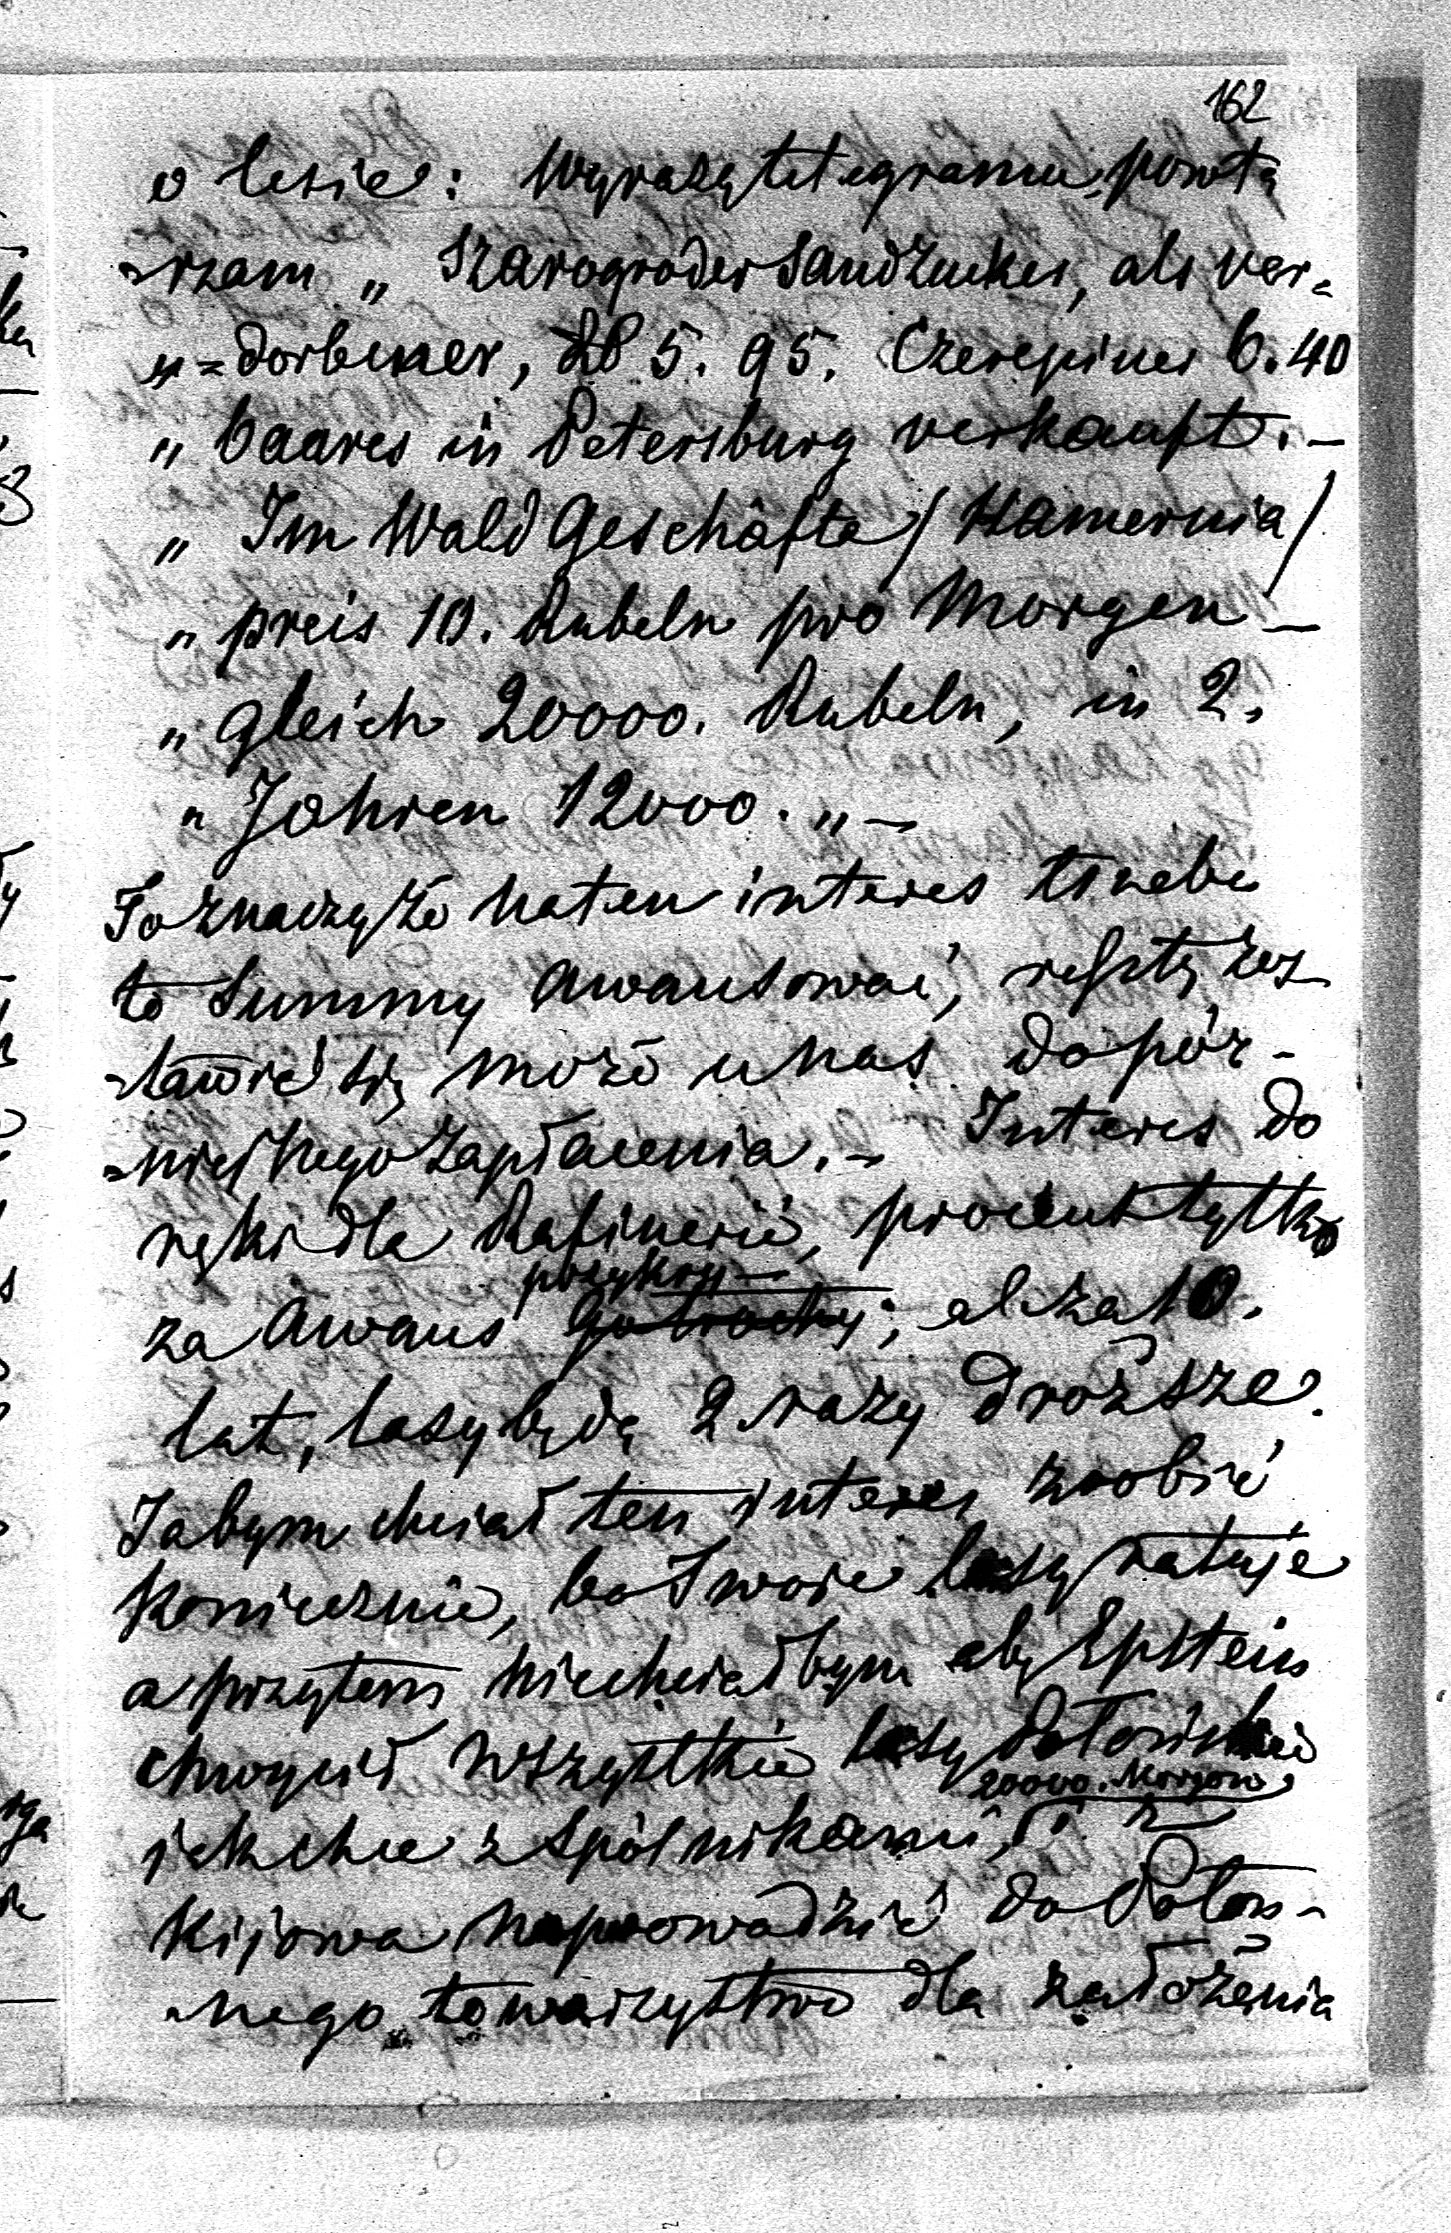 162
o lesie: Wyrazy telegramu powta
-rzam „ Szarogroder Sandzucker, als ver=
„ =dorbener, 5. 95. Czerepiner 6. 40
„ baares in Petersburg verkauft. —
„ Im Wald Geschäfte / Hamernia /
„ preis 10. Rubeln pro Morgen —
„ gleich 20000. Rubeln, in 2.
„ Jahren 12000. „ —
To znaczy że na ten interes trzeba
to Summy awansować, resztę zos
-tawić się może u nas do póz-
-niejszego zapłacenia. — Interes do
ręki dla Rafinerii, procent tylko
za awans po trochy; al za 10.
lat, lasy będą 2 razy droższe.
Jabym chciał ten interes zrobić
koniecznie, bo Twoie lasy ratuje
a przytem niechciałbym aby Epstein
chwycił wszystkie lasy Potockie
20000. Morgow
jak chce z Spólnikami, i z
Kijowa naprowadzić do Potoc-
-kiego towarzystwo dla założenia